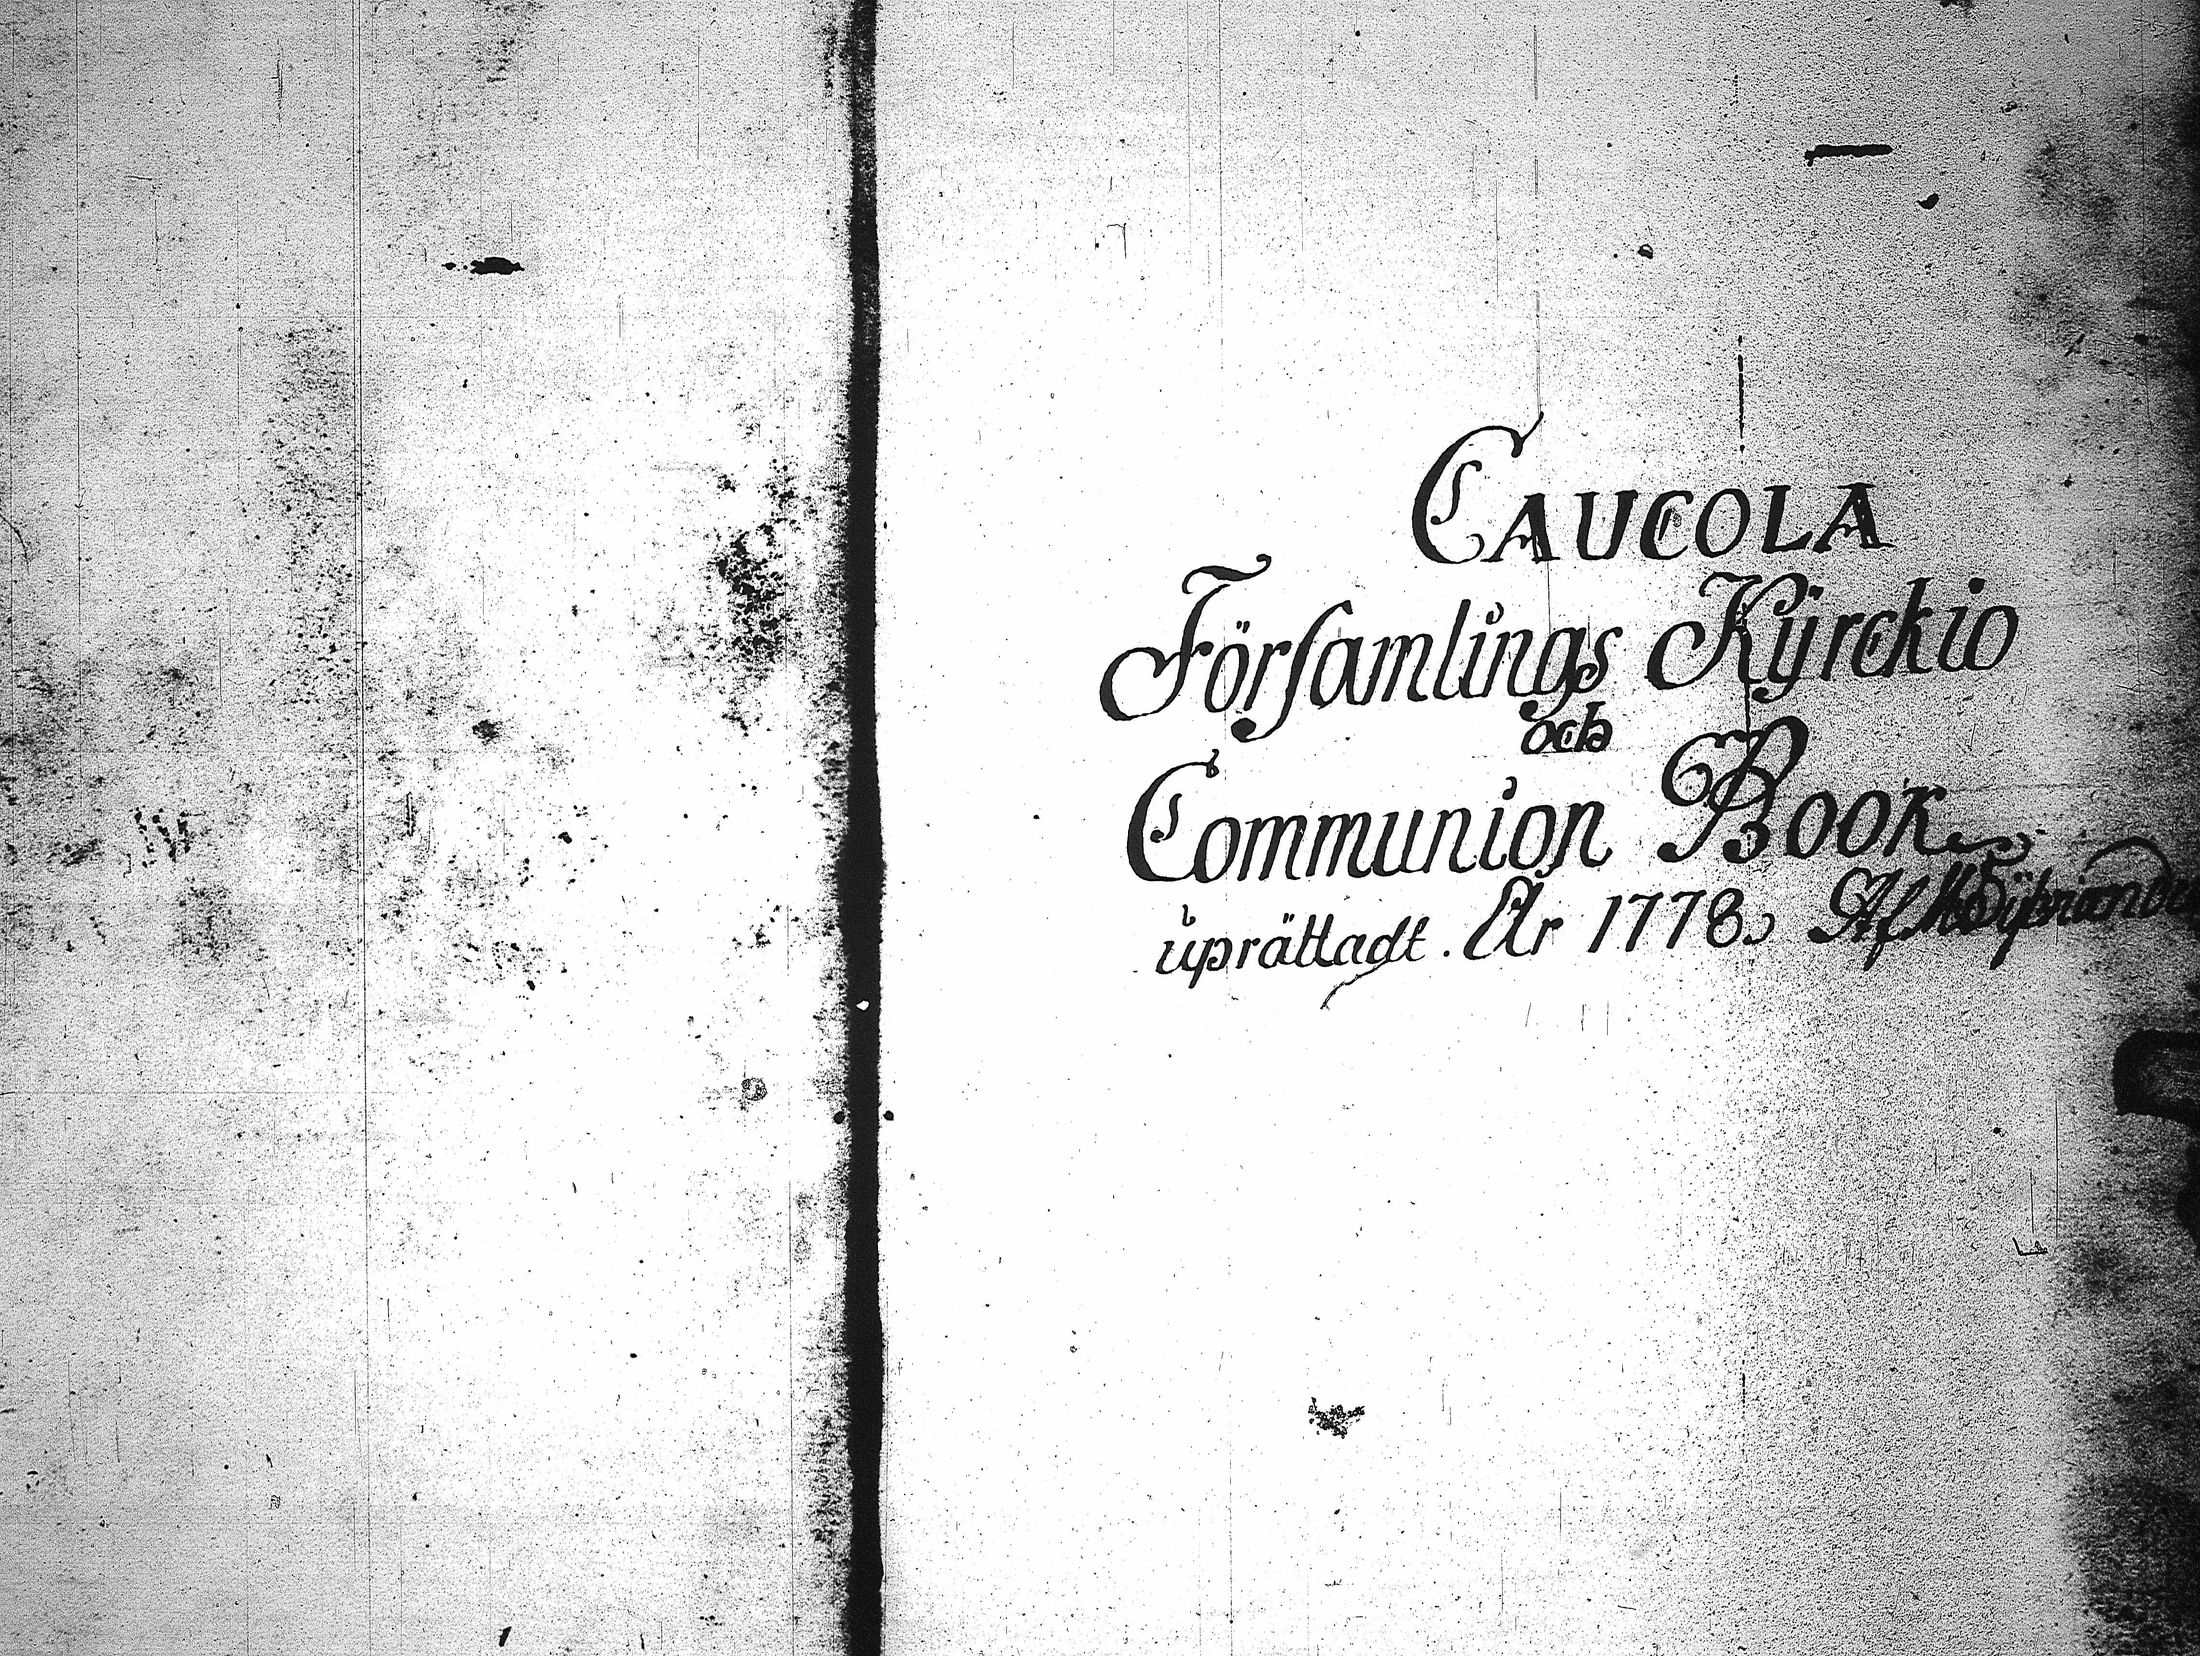 CAUCOLA
Församlings Kÿrckio
och
Communion Book
uprättadt. År 1778, Af